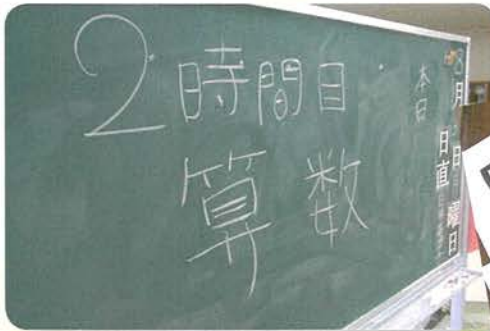 2時間目
算数
本日
月 日 曜日
日直